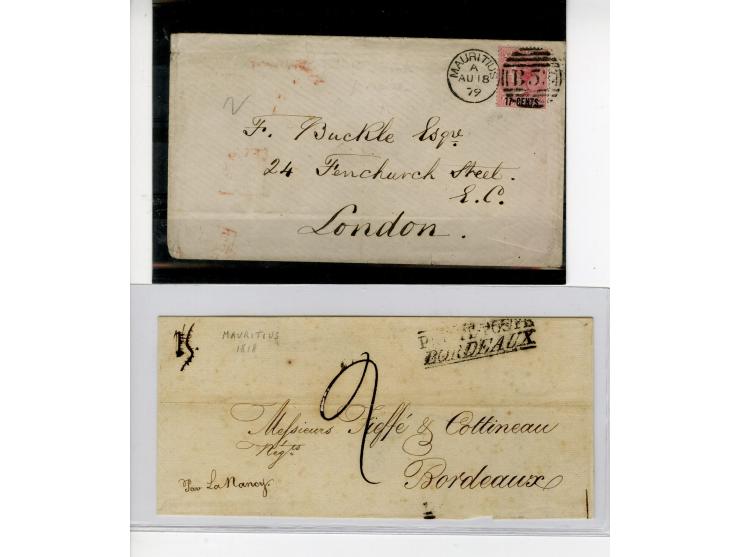 MAURITIUS
A
AU 18
79
B 53
17 CENTS
F. Buckle Esqre
24 Fenchurch Street.
E.C.
London.
MAURITIUS
1818
BORDEAUX
2
Messieurs Fieffé & Cottineau
Négts
Bordeaux
Par La Nancy.